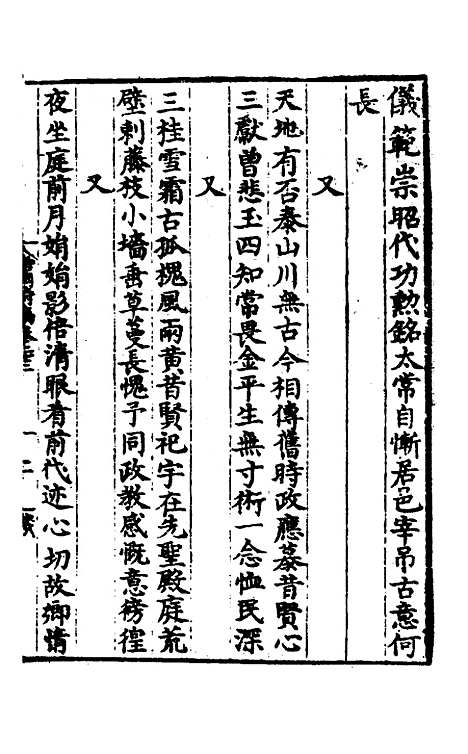 儀範崇昭代功勲銘太常自慚居邑宰吊古意何
長
又
天地有否泰山川無古今相傳舊時政應慕昔賢心
三獻曽悲玉四知常畏金平生無寸術一念恤民深
又
三桂雪霜古孤槐風雨黄昔賢祀宇在先聖殿庭荒
壁剌藤枝小墻垂草蔓長愧予同政教感慨意徬徨
又
夜坐庭前月娟娟影倍清眼看前代迹心切故鄉情